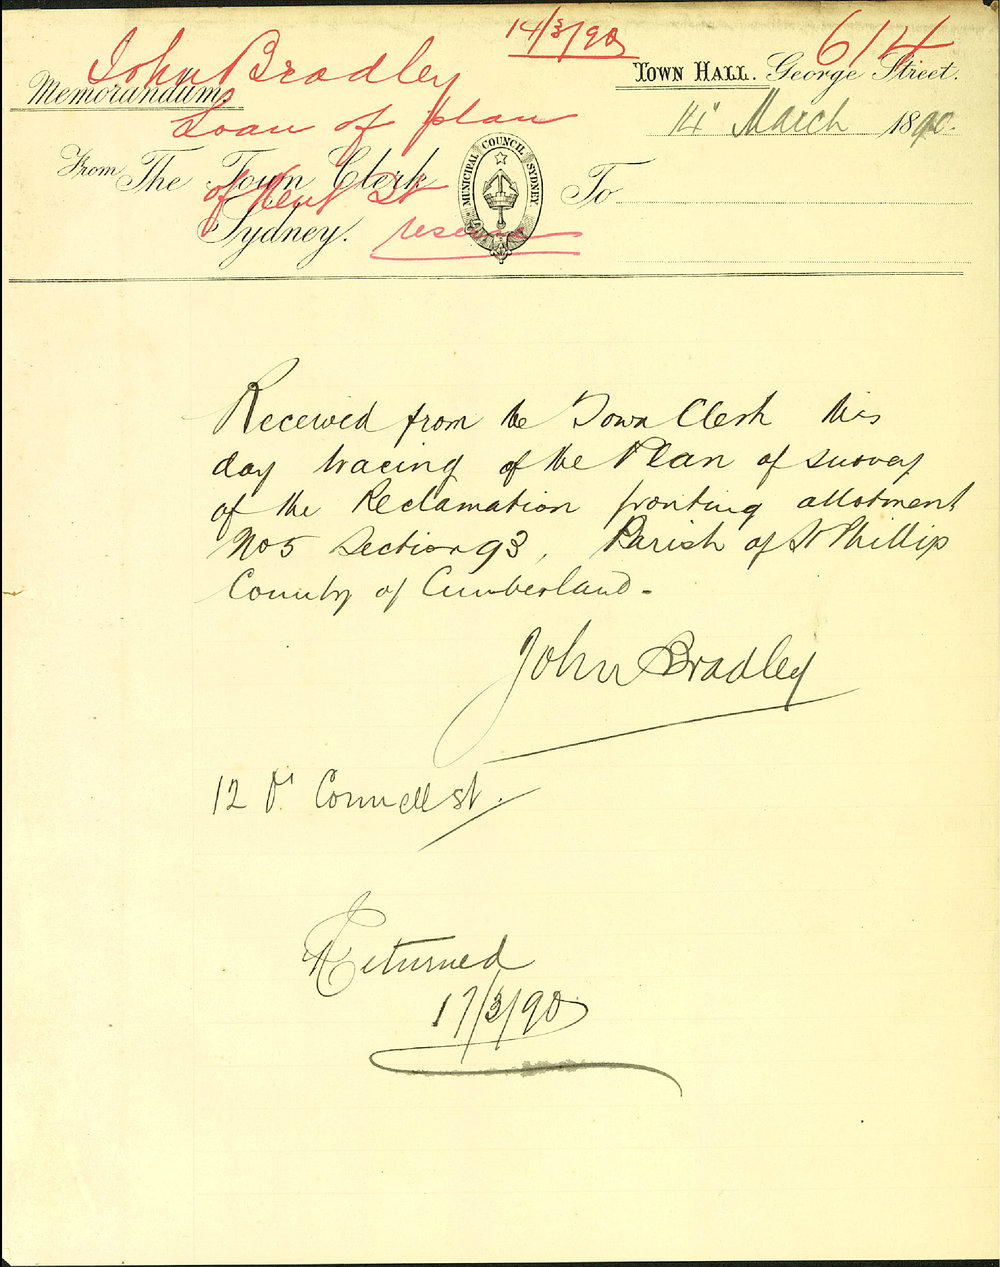 14/3/90
614
John Bradley
Loan of plan
of Kent St
reserve
Memorandum
From The Town Clerk
Sydney.
MUNICIPAL COUNCIL SYDNEY
Town Hall. George Street.
14" March 1890.
To
Received from the Town Clerk this
day tracing of the Plan of survey
of the Reclamation fronting allotment
No 5 Section 93, Parish of St Phillip
County of Cumberland.
John Bradley
12 O' Connell St.
Returned
17/3/90